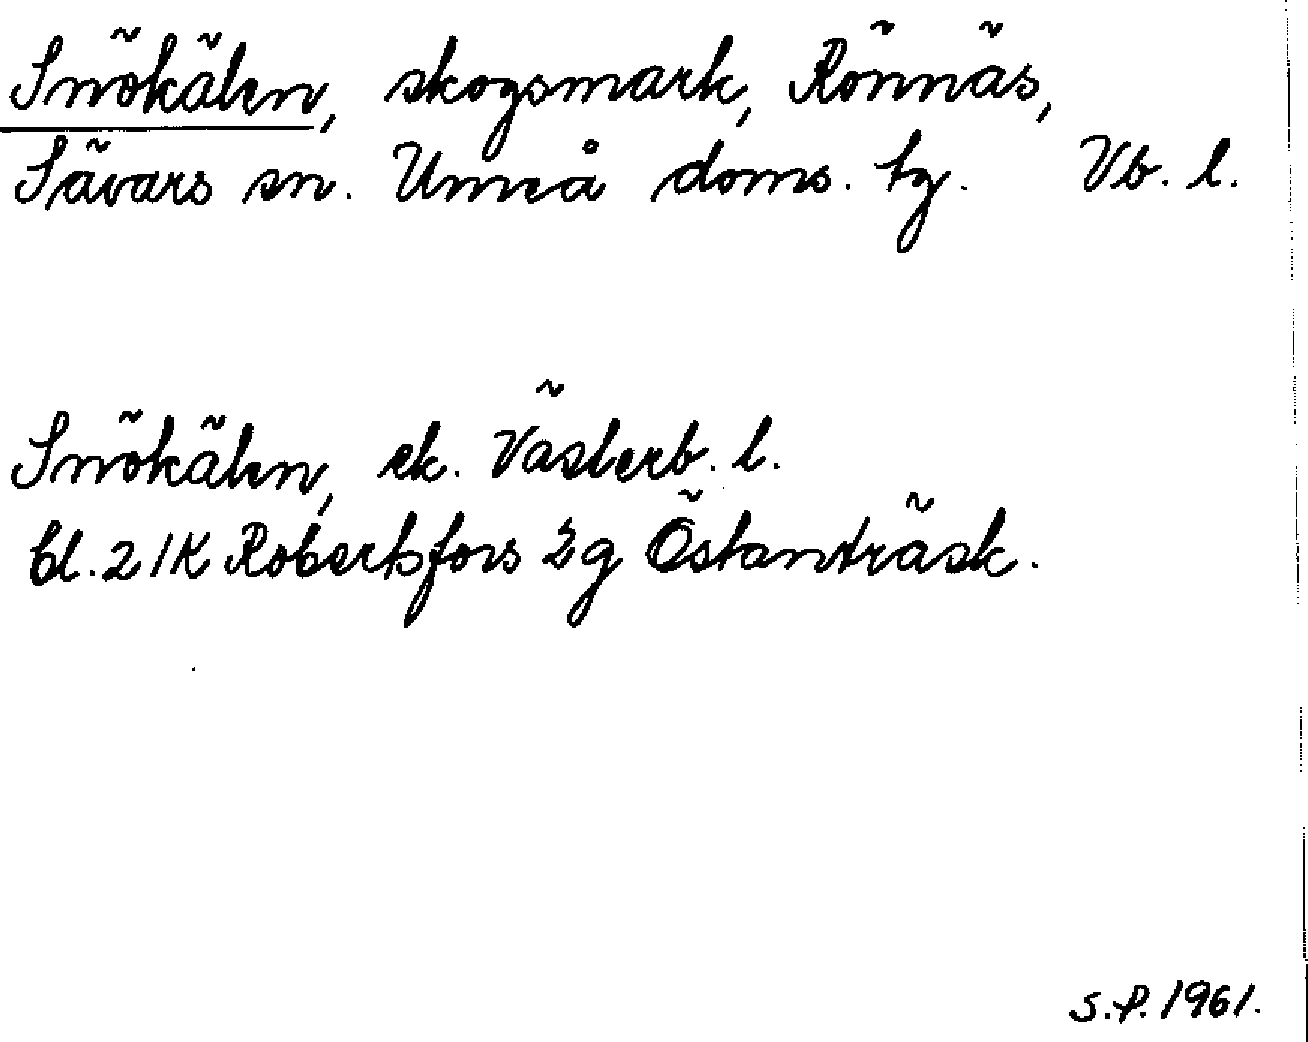 Snökälen, skogsmark, Rönnäs,
Sävars sn. Umeå doms. tg. Vb. l.
Snökälen, ek. Västerb. l.
bl. 21K Robertsfors 2g Östanträsk.
S.P. 1961.